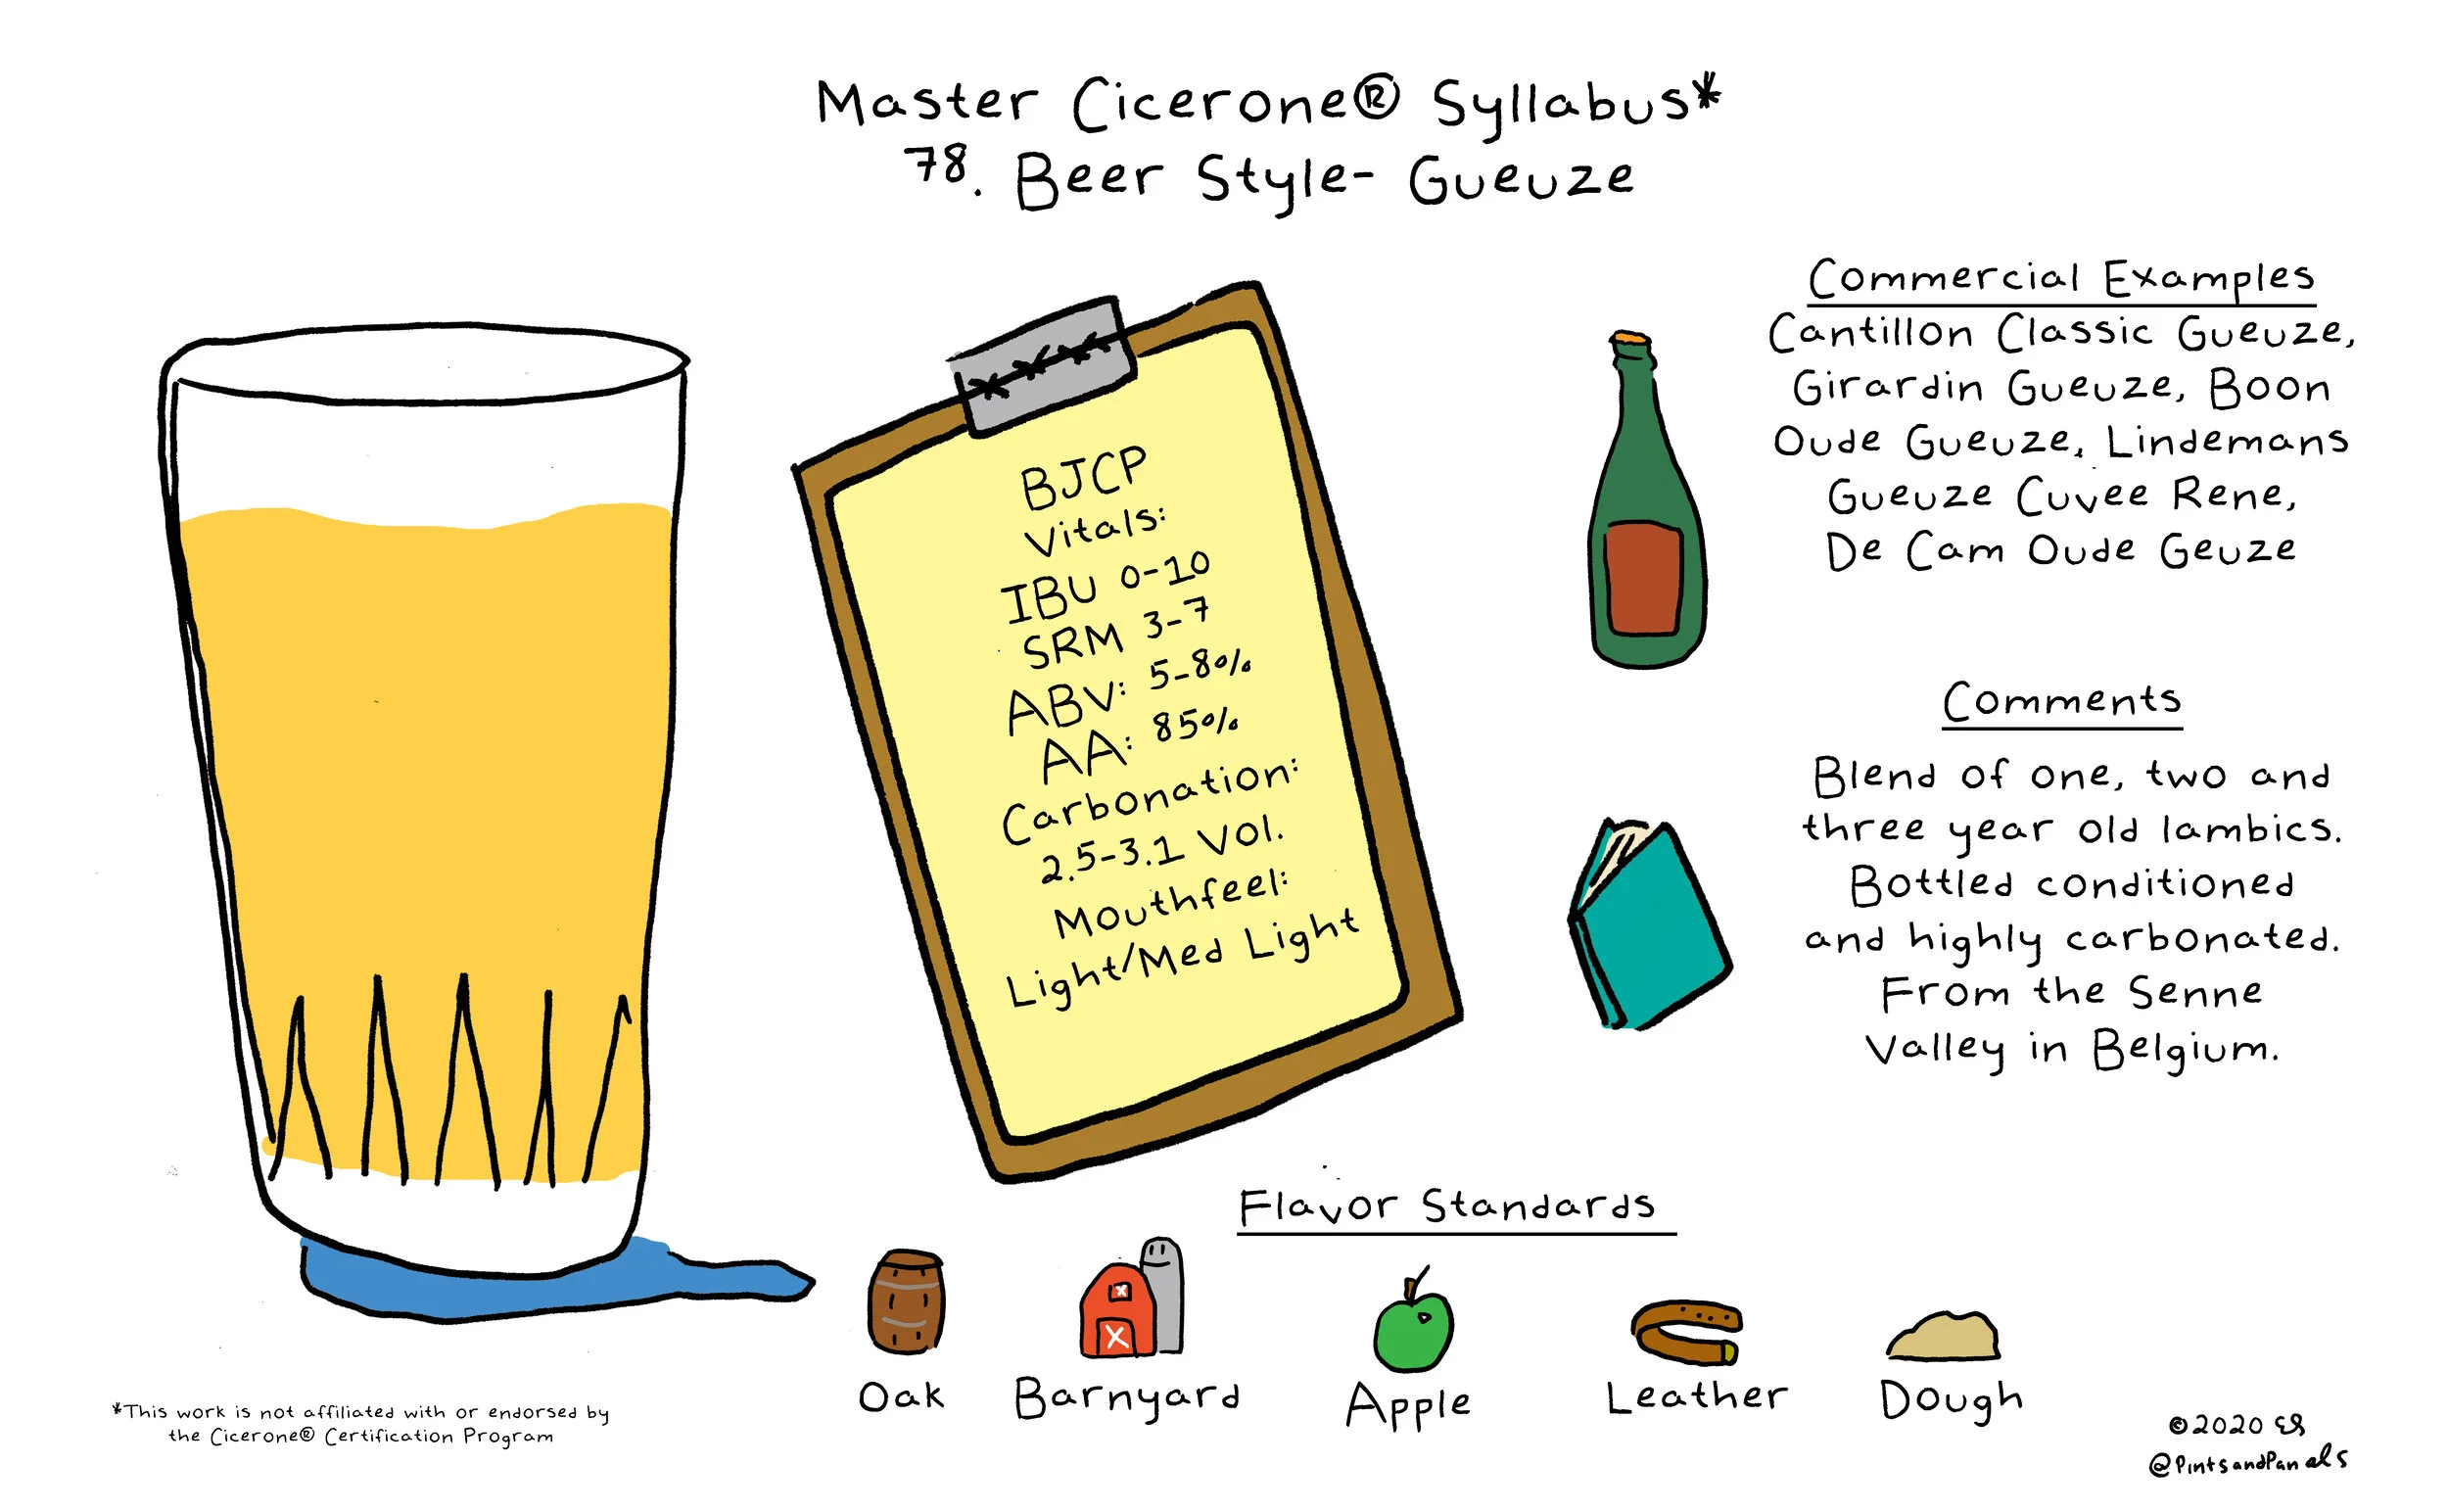 Master Cicerone® Syllabus*
78. Beer Style- Gueuze
BJCP
Vitals:
IBU 0-10
SRM 3-7
ABV: 5-8%
AA: 85%
Carbonation:
2.5-3.1 Vol.
Mouthfeel:
Light/Med Light
Commercial Examples
Cantillon Classic Gueuze,
Girardin Gueuze, Boon
Oude Gueuze, Lindemans
Gueuze Cuvee Rene,
De Cam Oude Geuze
Comments
Blend of one, two and
three year old lambics.
Bottled conditioned
and highly carbonated.
From the Senne
Valley in Belgium.
Flavor Standards
Oak
Barnyard
Apple
Leather
Dough
*This work is not affiliated with or endorsed by
the Cicerone® Certification Program
©2020 ES
@PintsandPanels